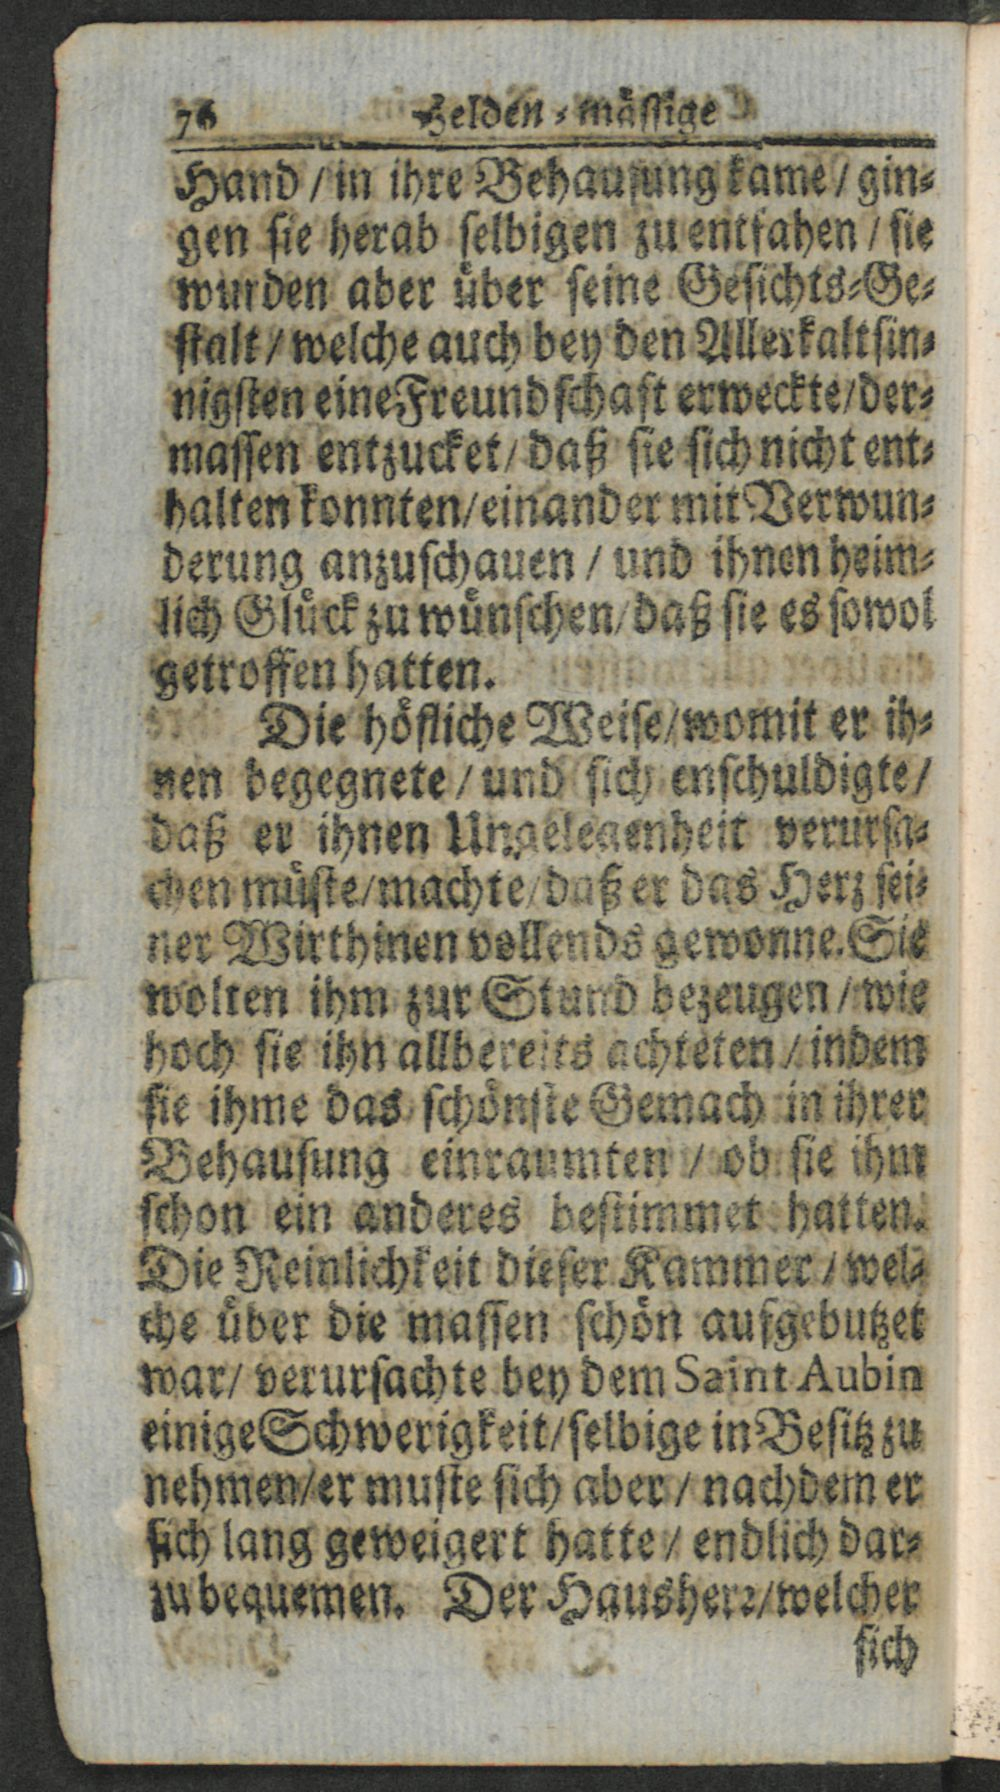 76 Helden-mässige
Hand / in ihre Behausung kame / gin-
gen sie herab selbigen zu entfahen / sie
wurden aber über seine Gesichts-Ge-
stalt / welche auch bey den Allerkaltsin-
nigsten eine Freundschaft erweckte / der-
massen entzucket / daß sie sich nicht ent-
halten konnten / einander mit Verwun-
derung anzuschauen / und ihnen heim-
lich Glück zu wünschen / daß sie es sowol
getroffen hatten.
Die höfliche Weise / womit er ih-
nen begegnete / und sich enschuldigte /
daß er ihnen Ungelegenheit verursa-
chen müste / machte / daß er das Herz sei-
ner Wirthinen vollends gewonne. Sie
wolten ihm zur Stund bezeugen / wie
hoch sie ihn allbereits achteten / indem
sie ihme das schönste Gemach in ihrer
Behausung einraumten / ob sie ihm
schon ein anderes bestimmet hatten.
Die Reinlichkeit dieser Kammer / wel-
che über die massen schön aufgebutzet
war / verursachte bey dem Saint Aubin
einige Schwerigkeit / selbige in Besitz zu
nehmen / er muste sich aber / nachdem er
sich lang geweigert hatte / endlich dar-
zu bequemen. Der Hausherr / welcher
sich